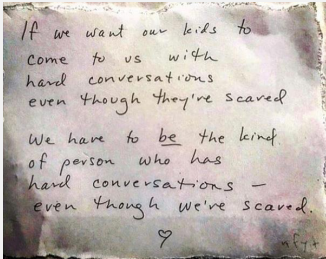 If we want our kids to
come to us with
hard conversations
even though they're scared
We have to be the kind
of person who has
hard conversations –
even though we're scared.
♡
nfyt